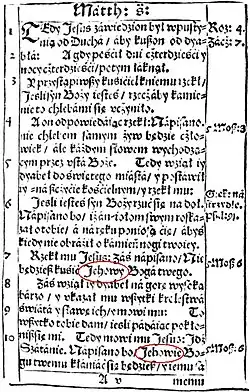 Matth: s:
1 TEdy Jesus zawiedzion był w pusty- Roz: 4.
nią od Ducha/ aby kuszon od dya- Zacz: 7.
2 bła: A gdy pościł dni czterdzieści y
nocy czterdzieści/ potym łaknął.
3 Y przystąpiwszy kusiciel k niemu rzekł/
Jesliś syn Boży jesteś/ rzecz aby kamie-
nie to chlebami się uczyniło.
4 A on odpowiadając rzekł: Napisano. 5 Moś: 8
nie chlebem samym żyw będzie czło-
wiek/ ale każdym słowem wychodzą-
5 cym przez usta Boże. Tedy wziął iy
dyabeł do świętego miasta/ y postawił
y na szczycie kościelnym/ y rzekł mu:
6 Jesli iesteś syn Boży rzuć się na doł.
Napisano bo/ iż aniołom swym roska- psal: 91.
zał o tobie/ a na ręku poniosą cię/ abyś
kiedy nie obraził o kamień nogi twoiey.
7 Rzekł mu Jesus: Zaś napisano/ Nie 5 Moś: 6
będziesz kusić Jehowy Boga twego.
8 Zaś wziął iy dyabeł na gorę wysoką
barzo/ y ukazał mu wszytki krolestwa
9 świata y sławę ich/ mowi mu: To
wszytko tobie dam/ iesli padaiąc pokło-
10 nisz mi. Tedy mowi mu Jesus: Idź
Szatanie. Napisano bo/ Jehowie Bo-
gu twemu kłaniać się będziesz/ y iemu
A v